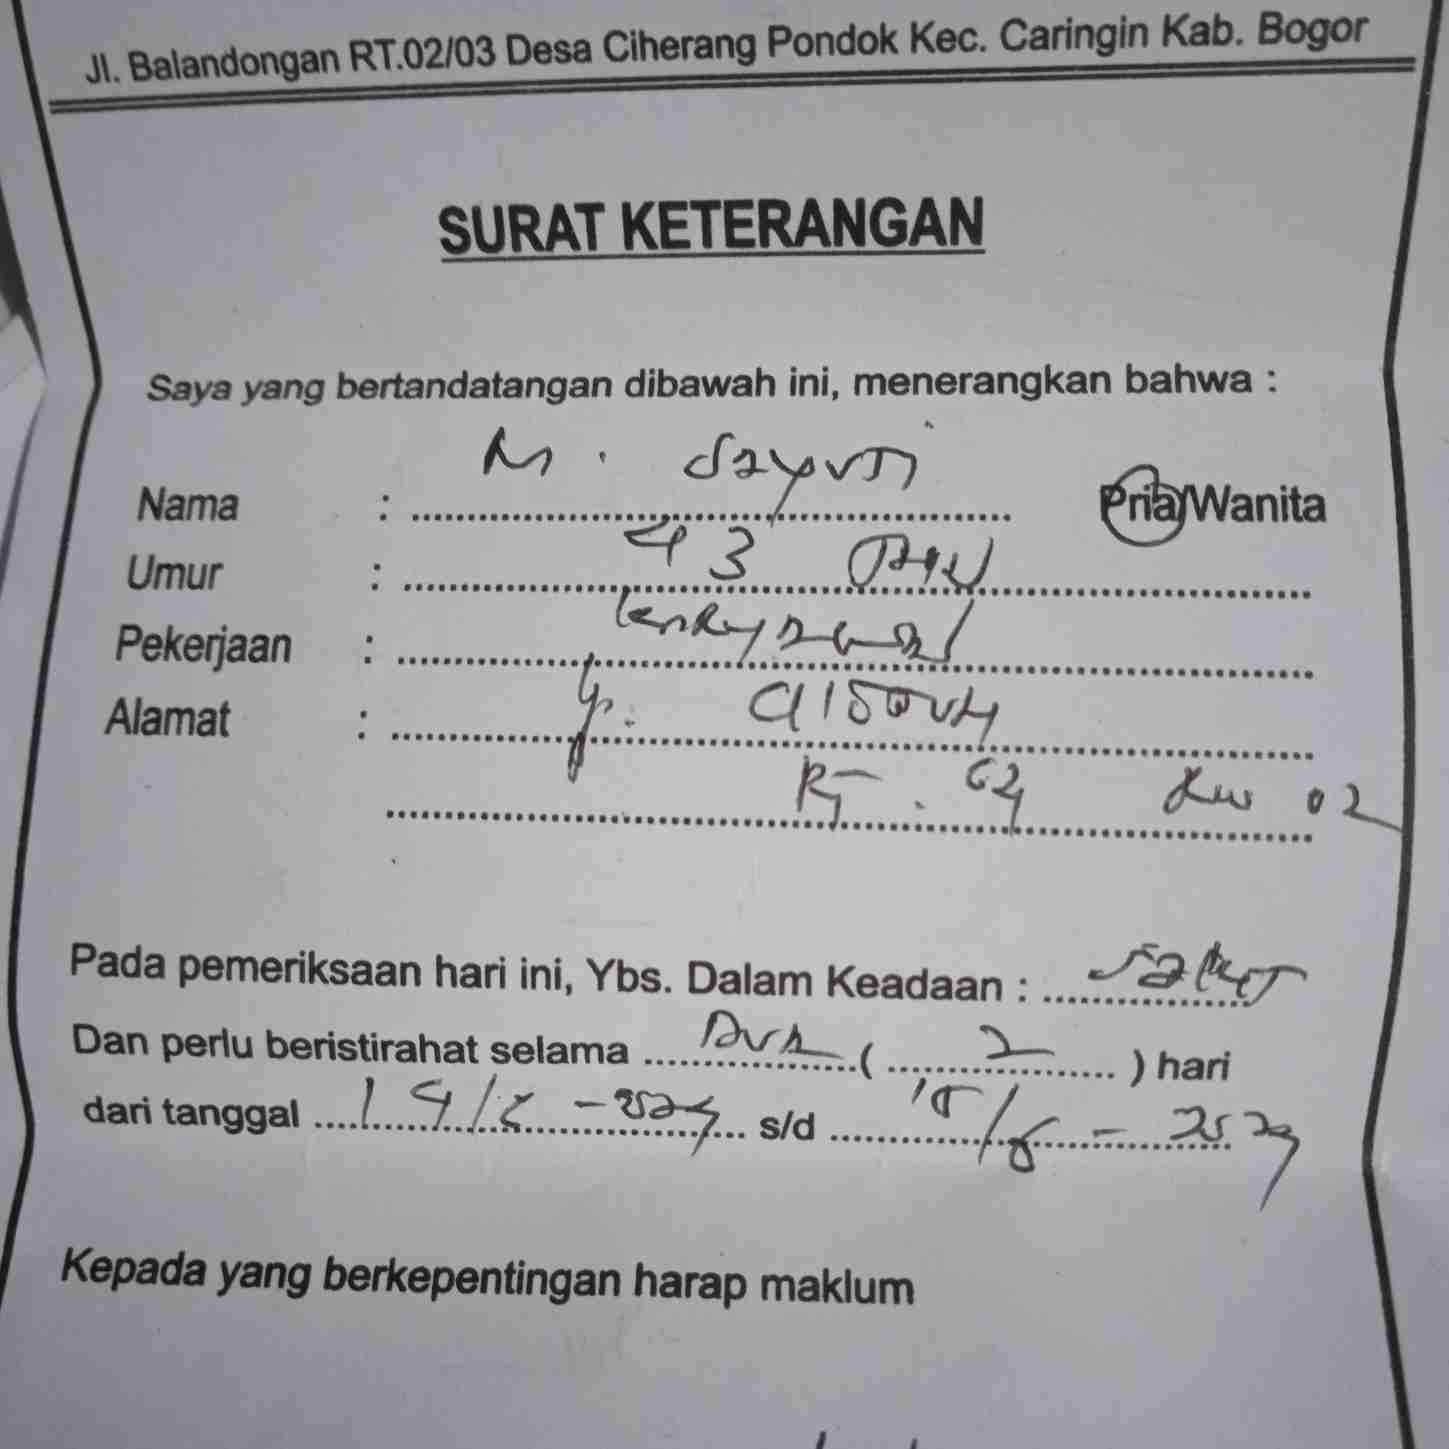 Jl. Balandongan RT.02/03 Desa Ciherang Pondok Kec. Caringin Kab. Bogor
SURAT KETERANGAN
Saya yang bertandatangan dibawah ini, menerangkan bahwa :
Nama : M. Sayuti Pria/Wanita
Umur : 43
Pekerjaan :
Alamat : Kp.
RT. 04 RW 02
Pada pemeriksaan hari ini, Ybs. Dalam Keadaan : Sakit
Dan perlu beristirahat selama Dua ( 2 ) hari
dari tanggal 14/ s/d 15/6 -
Kepada yang berkepentingan harap maklum